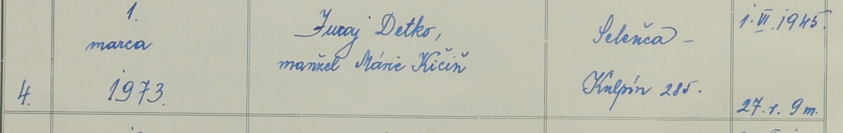 4.
1.
marca
1973.
Juraj Detko,
manžel Márie Kičiň
Selenča -
Kulpín 285.
1. VI. 1945.
27. r. 9 m.